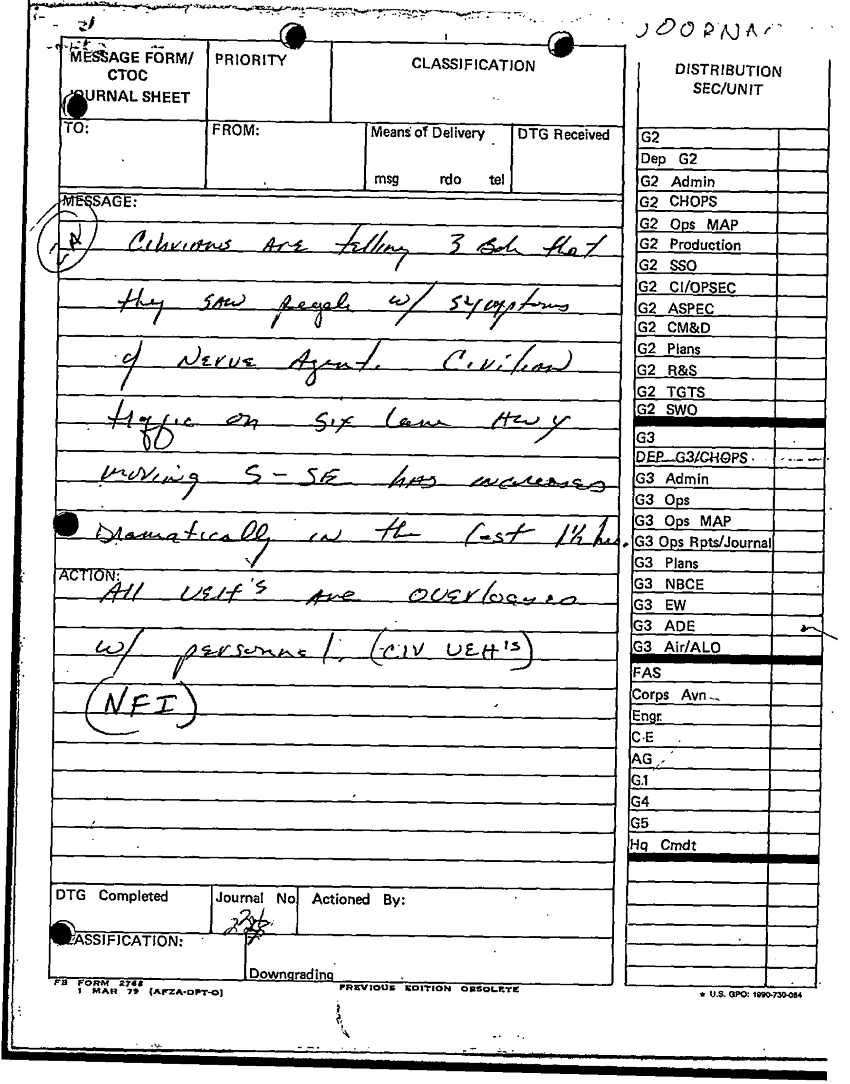 JOURNA
MESSAGE FORM/
CTOC
JOURNAL SHEET
PRIORITY
CLASSIFICATION
TO:
FROM:
Means of Delivery
msg rdo tel
DTG Received
MESSAGE:
Cilivians are telling 3 Bde that
they saw people w/ symptoms
of Nerve Agent. Civilian
traffic on six lane Hwy
moving S-SE has increased
Dramatically in the last 1½ hrs.
ACTION:
All VEH's are overloaded
w/ personnel. (CIV VEH's)
(NFI)
DTG Completed
Journal No
Actioned By:
CLASSIFICATION:
Downgrading
FB FORM 2768
1 MAR 79 (AFZA-DPT-O)
PREVIOUS EDITION OBSOLETE
DISTRIBUTION
SEC/UNIT
G2
Dep G2
G2 Admin
G2 CHOPS
G2 Ops MAP
G2 Production
G2 SSO
G2 CI/OPSEC
G2 ASPEC
G2 CM&D
G2 Plans
G2 R&S
G2 TGTS
G2 SWO
G3
DEP G3/CHOPS
G3 Admin
G3 Ops
G3 Ops MAP
G3 Ops Rpts/Journal
G3 Plans
G3 NBCE
G3 EW
G3 ADE
G3 Air/ALO
FAS
Corps Avn
Engr
C-E
AG
G.1
G4
G5
Hq Cmdt
* U.S. GPO: 1990-730-084